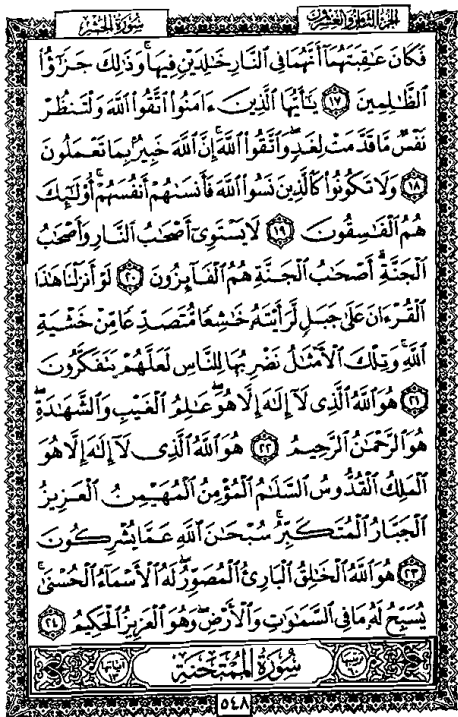 سُورَةُ الحَشْرِ الجُزءُ الثَّامِنُ وَالعِشْرُونَ
فَكَانَ عَٰقِبَتَهُمَآ أَنَّهُمَا فِى ٱلنَّارِ خَٰلِدَيْنِ فِيهَا ۚ وَذَٰلِكَ جَزَٰٓؤُا۟
ٱلظَّٰلِمِينَ ١٧ يَٰٓأَيُّهَا ٱلَّذِينَ ءَامَنُوا۟ ٱتَّقُوا۟ ٱللَّهَ وَلْتَنظُرْ
نَفْسٌ مَّا قَدَّمَتْ لِغَدٍ ۖ وَٱتَّقُوا۟ ٱللَّهَ ۚ إِنَّ ٱللَّهَ خَبِيرٌۢ بِمَا تَعْمَلُونَ
١٨ وَلَا تَكُونُوا۟ كَٱلَّذِينَ نَسُوا۟ ٱللَّهَ فَأَنسَىٰهُمْ أَنفُسَهُمْ ۚ أُو۟لَٰٓئِكَ
هُمُ ٱلْفَٰسِقُونَ ١٩ لَا يَسْتَوِىٓ أَصْحَٰبُ ٱلنَّارِ وَأَصْحَٰبُ
ٱلْجَنَّةِ ۚ أَصْحَٰبُ ٱلْجَنَّةِ هُمُ ٱلْفَآئِزُونَ ٢٠ لَوْ أَنزَلْنَا هَٰذَا
ٱلْقُرْءَانَ عَلَىٰ جَبَلٍ لَّرَأَيْتَهُۥ خَٰشِعًا مُّتَصَدِّعًا مِّنْ خَشْيَةِ
ٱللَّهِ ۚ وَتِلْكَ ٱلْأَمْثَٰلُ نَضْرِبُهَا لِلنَّاسِ لَعَلَّهُمْ يَتَفَكَّرُونَ
٢١ هُوَ ٱللَّهُ ٱلَّذِى لَآ إِلَٰهَ إِلَّا هُوَ ۖ عَٰلِمُ ٱلْغَيْبِ وَٱلشَّهَٰدَةِ ۖ
هُوَ ٱلرَّحْمَٰنُ ٱلرَّحِيمُ ٢٢ هُوَ ٱللَّهُ ٱلَّذِى لَآ إِلَٰهَ إِلَّا هُوَ
ٱلْمَلِكُ ٱلْقُدُّوسُ ٱلسَّلَٰمُ ٱلْمُؤْمِنُ ٱلْمُهَيْمِنُ ٱلْعَزِيزُ
ٱلْجَبَّارُ ٱلْمُتَكَبِّرُ ۚ سُبْحَٰنَ ٱللَّهِ عَمَّا يُشْرِكُونَ
٢٣ هُوَ ٱللَّهُ ٱلْخَٰلِقُ ٱلْبَارِئُ ٱلْمُصَوِّرُ ۖ لَهُ ٱلْأَسْمَآءُ ٱلْحُسْنَىٰ ۚ
يُسَبِّحُ لَهُۥ مَا فِى ٱلسَّمَٰوَٰتِ وَٱلْأَرْضِ ۖ وَهُوَ ٱلْعَزِيزُ ٱلْحَكِيمُ ٢٤
سُورَةُ المُمْتَحنَةِ
٥٤٨